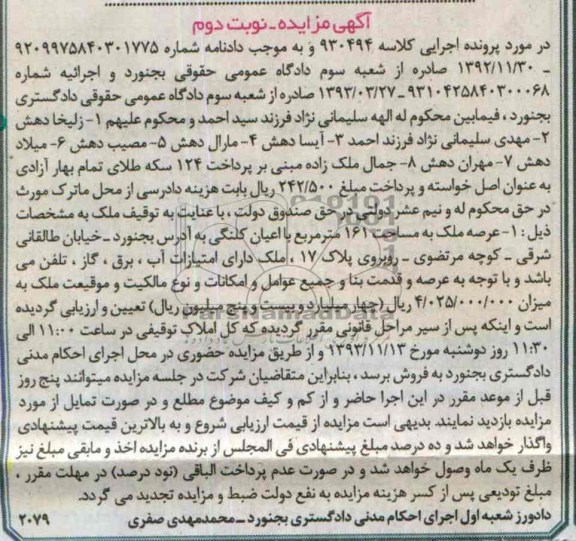 آگهی مزایده ـ نوبت دوم
در مورد پرونده اجرایی کلاسه ۹۳۰۴۹۴ و به موجب دادنامه شماره ۹۲۰۹۹۷۵۸۴۰۳۰۱۷۷۵
ـ ۱۳۹۲/۱۱/۳۰ صادره از شعبه سوم دادگاه عمومی حقوقی بجنورد و اجرائیه شماره
۹۳۱۰۴۲۵۸۴۰۳۰۰۰۶۸ ـ ۱۳۹۳/۰۳/۲۷ صادره از شعبه سوم دادگاه عمومی حقوقی دادگستری
بجنورد ، فیمابین محکوم له الهه سلیمانی نژاد فرزند سید احمد و محکوم علیهم ۱- زلیخا دهش
۲- مهدی سلیمانی نژاد فرزند احمد ۳- آیسا دهش ۴- مارال دهش ۵- مصیب دهش ۶- میلاد
دهش ۷- مهران دهش ۸- جمال ملک زاده مبنی بر پرداخت ۱۲۴ سکه طلای تمام بهار آزادی
به عنوان اصل خواسته و پرداخت مبلغ ۲۴۲/۵۰۰ ریال بابت هزینه دادرسی از محل ماترک مورث
در حق محکوم له و نیم عشر دولتی در حق صندوق دولت ، با عنایت به توقیف ملک به مشخصات
ذیل : ۱- عرصه ملک به مساحت ۱۶۱ مترمربع با اعیان کلنگی به آدرس بجنورد ـ خیابان طالقانی
شرقی ـ کوچه مرتضوی ـ روبروی پلاک ۱۷ ، ملک دارای امتیازات آب ، برق ، گاز ، تلفن می
باشد و با توجه به عرصه و قدمت بنا و جمیع عوامل و امکانات و نوع مالکیت و موقیعت ملک به
میزان ۴/۰۲۵/۰۰۰/۰۰۰ ریال (چهار میلیارد و بیست و پنج میلیون ریال) تعیین و ارزیابی گردیده
است و اینکه پس از سیر مراحل قانونی مقرر گردیده که کل املاک توقیفی در ساعت ۱۱:۰۰ الی
۱۱:۳۰ روز دوشنبه مورخ ۱۳۹۳/۱۱/۱۳ و از طریق مزایده حضوری در محل اجرای احکام مدنی
دادگستری بجنورد به فروش برسد ، بنابراین متقاضیان شرکت در جلسه مزایده میتوانند پنج روز
قبل از موعد مقرر در این اجرا حاضر و از کم و کیف موضوع مطلع و در صورت تمایل از مورد
مزایده بازدید نمایند. بدیهی است مزایده از قیمت ارزیابی شروع و به بالاترین قیمت پیشنهادی
واگذار خواهد شد و ده درصد مبلغ پیشنهادی فی المجلس از برنده مزایده اخذ و مابقی مبلغ نیز
ظرف یک ماه وصول خواهد شد و در صورت عدم پرداخت الباقی (نود درصد) در مهلت مقرر ،
مبلغ تودیعی پس از کسر هزینه مزایده به نفع دولت ضبط و مزایده تجدید می گردد.
دادورز شعبه اول اجرای احکام مدنی دادگستری بجنورد ـ محمدمهدی صفری ۲۰۷۹